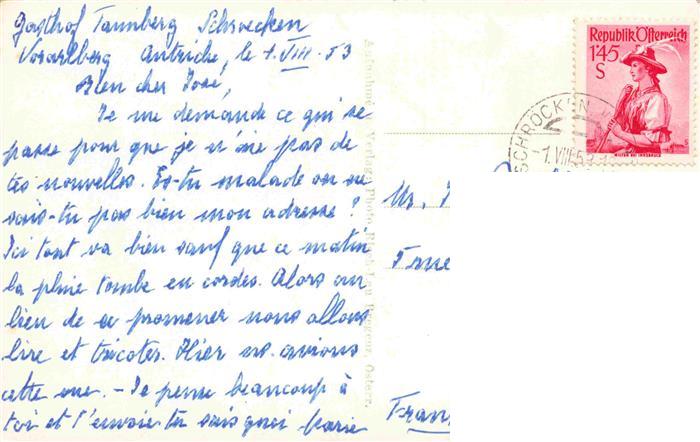 Gasthof Tannberg Schrœcken
Vorarlberg Autriche, le 1.VIII.53
Bien cher José,
Je me demande ce qui se
passe pour que je n'aie pas de
tes nouvelles. Es-tu malade ou ne
sais-tu pas bien mon adresse?
Ici tout va bien sauf que ce matin
la pluie tombe en cordes. Alors au
lieu de se promener nous allons
lire et tricoter. Hier ns. avions
cette vue. - Je pense beaucoup à
toi et t'envoie tu sais quoi Marie
Republik Österreich
1'45
S
SCHRÖCKEN
-1.VIII.53
Mr.
Fran